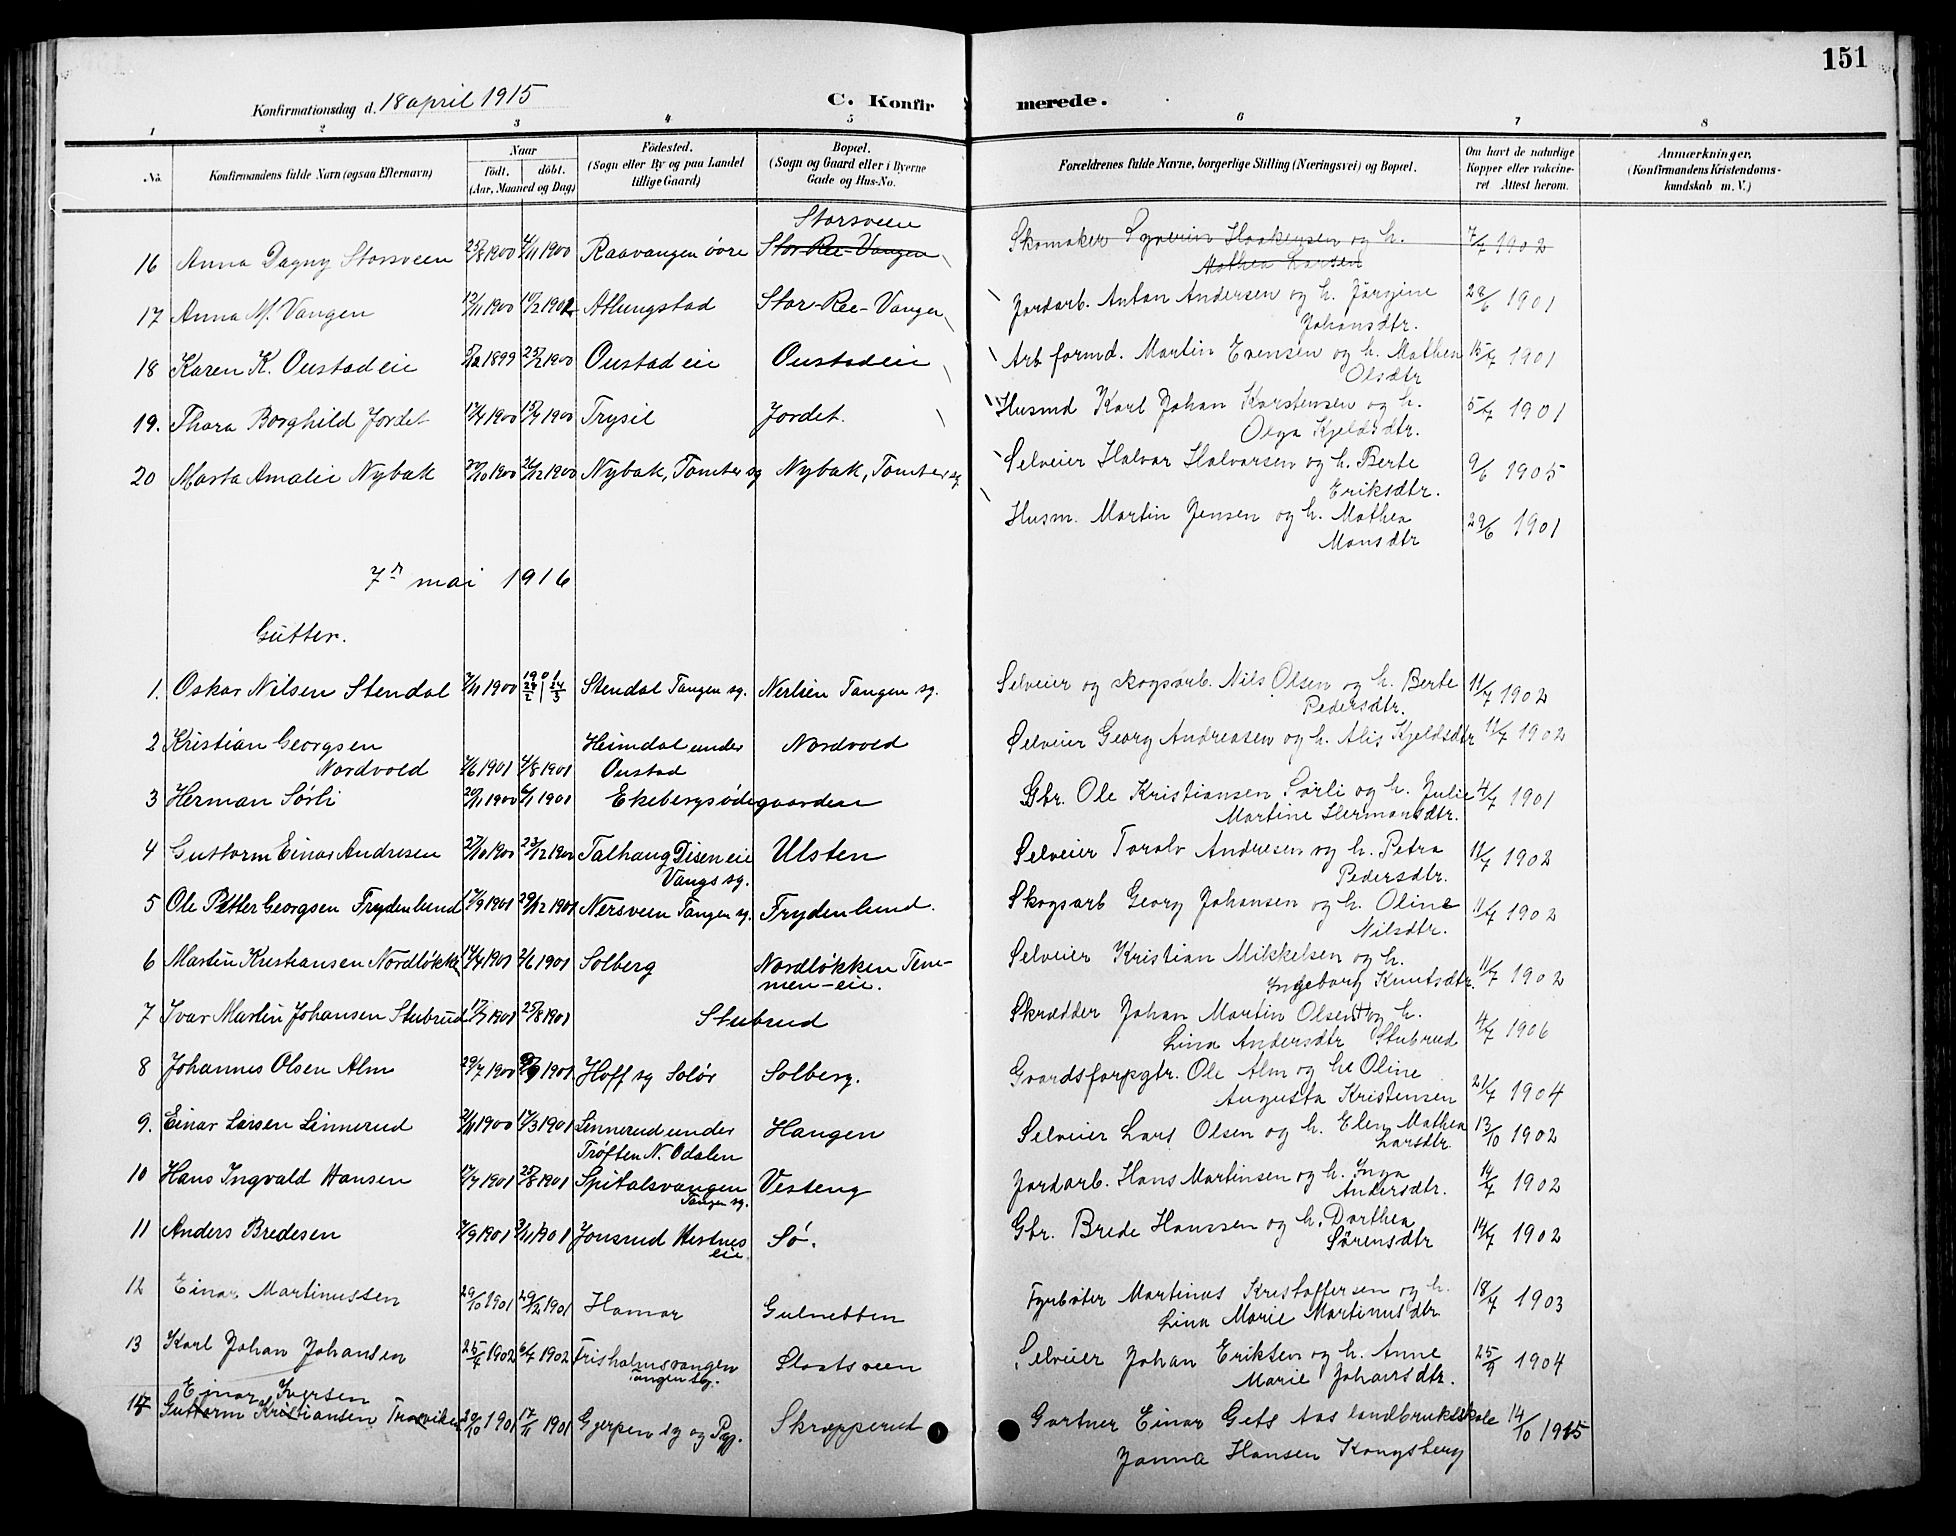 151
Konfirmationsdag d. 18 april 1915
C. Konfir
merede.
1 2 3 4 5 6 7 8
No.
Konfirmandens fulde Navn (ogsaa Efternavn)
Naar
født. døbt.
(Aar, Maaned og Dag)
Fødested.
(Sogn eller By og paa Landet
tillige Gaard)
Bopæl.
(Sogn og Gaard eller i Byerne
Gade og Hus-No.
Forældrenes fulde Navne, borgerlige Stilling (Næringsvei) og Bopæl.
Om havt de naturlige
Kopper eller vakcine-
ret Attest herom.
Anmærkninger.
(Konfirmandens Kristendoms-
kundskab m. V.)
Storsveen
16 Anna Dagny Storsveen 25/8 1900 4/11 1900 Raavangen øvre Stor-Ree-Vangen Skomaker Syverin Haakensen og h. 7/7 1902
Mathea Larsen
17 Anna M. Vangen 12/11 1900 10/2 1901 Atlungstad Stor-Ree-Vangen Jordarb. Anton Andersen og h. Jørgine 28/6 1901
Johansdtr.
18 Karen K. Oustadeie 5/12 1899 25/2 1900 Oustadeie Oustadeie Arb formd. Martin Evensen og h. Mathea 15/7 1901
Olsdtr
19. Thora Borghild Jordet 17/4 1900 15/7 1900 Trysil Jordet. Husmd Karl Johan Karstensen og h. 5/7 1901
Olga Kjeldsdtr.
20 Marta Amalie Nybak 20/10 1900 26/12 1900 Nybak, Tomter sg Nybak, Tomter sg. Selveier Halvor Halvorsen og h. Berte 9/6 1905
Eriksdtr.
Husm. Martin Jensen og h. Mathea 29/6 1901
Monsdtr
7de mai 1916
Gutter.
1. Oskar Nilsen Stendal 7/11 1900 1901 24/2 | 24/5 Stendal Tangen sg. Nerlien Tangen sg. Selveier og skogsarb. Nils Olsen og h. Berte 11/7 1902
Pedersdtr.
2 Kristian Georgsen Heimdal under Nordvold Selveier Georg Andreasen og h. Alis Kjeldsdtr 11/7 1902
Nordvold 7/6 1901 4/8 1901 Oustad
3 Herman Sørli 20/11 1900 6/1 1901 Ekebergsødegaarden Gbr. Ole Kristiansen Sørli og h. Julie 4/7 1901
Martine Hermansdtr.
4 Guttorm Einar Andresen 27/10 1900 23/12 1900 Talhaug Disen eie Ulsten Selveier Toralv Andresen og h. Petra 11/7 1902
Vangs sg. Pedersdtr.
5 Ole Petter Georgsen Frydenlund 17/9 1901 29/12 1901 Nersveen Tangen sg. Frydenlund. Skogsarb Georg Johansen og h. Oline 11/7 1902
Nilsdtr.
6 Martin Kristiansen Nordløkken 14/4 1901 2/6 1901 Solberg Nordløkken Tem- Selveier Kristian Mikkelsen og h. 11/7 1902
men-eie. Ingeborg Knutsdtr.
7 Ivar Martin Johansen Stubrud 17/7 1901 25/8 1901 Stubrud Skrædder Johan Martin Olsen og h. 4/7 1906
Lina Andersdtr Stubrud
8 Johannes Olsen Alm 29/7 1900 1901 Hoff sg Solør Solberg. Gaardsforpgtr. Ole Alm og h. Oline 21/7 1904
Augusta Kristensen
9. Einar Larsen Linnerud 2/11 1900 17/3 1901 Linnerud under Haugen Selveier Lars Olsen og h. Elen Mathea 13/10 1902
Trøften N. Odalen Larsdtr
10 Hans Ingvald Hansen 17/7 1901 25/8 1901 Spitalsvangen Vesteng Jordarb. Hans Martinsen og h. Inga 14/7 1902
Tangen sg. Andersdtr.
11 Anders Bredesen 7/9 1901 3/11 1901 Jonsrud Hestnes Sø. Gbr. Brede Hanssen og h. Dorthea 14/7 1902
eie. Sørensdtr
12 Einar Martinussen 29/10 1901 29/12 1901 Hamar Gulnetten Fyrbøter Martinus Kristoffersen og h. 18/7 1903
Lina Marie Martinusdtr
13 Karl Johan Johansen 25/4 1902 6/7 1902 Frisholmsvangen Staatsveen Selveier Johan Eriksen og h. Anne 25/9 1904
Tangen sg. Marie Johansdtr.
Einar Iversen
14 Guttorm Kristiansen 20/10 1901 17/11 1901 Gjerpen sg og Pgj. Skrapperud Gartner Einar Gets Aas landbrukskole 14/10 1915
Janna Hansen Kongsberg